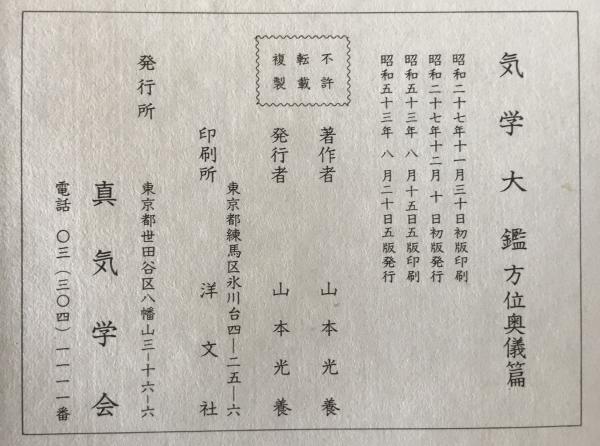 気学大鑑 方位奥儀篇
昭和二十七年十一月三十日初版印刷
昭和二十七年十二月 十 日初版発行
昭和五十三年 八 月十五日五版印刷
昭和五十三年 八 月二十日五版発行
不許
転載
複製
著作者 山本光養
発行者 山本光養
東京都練馬区氷川台四―二五―六
印刷所 洋文社
発行所
東京都世田谷区八幡山三―十六―六
真気学会
電話 〇三(三〇四)一一一一番